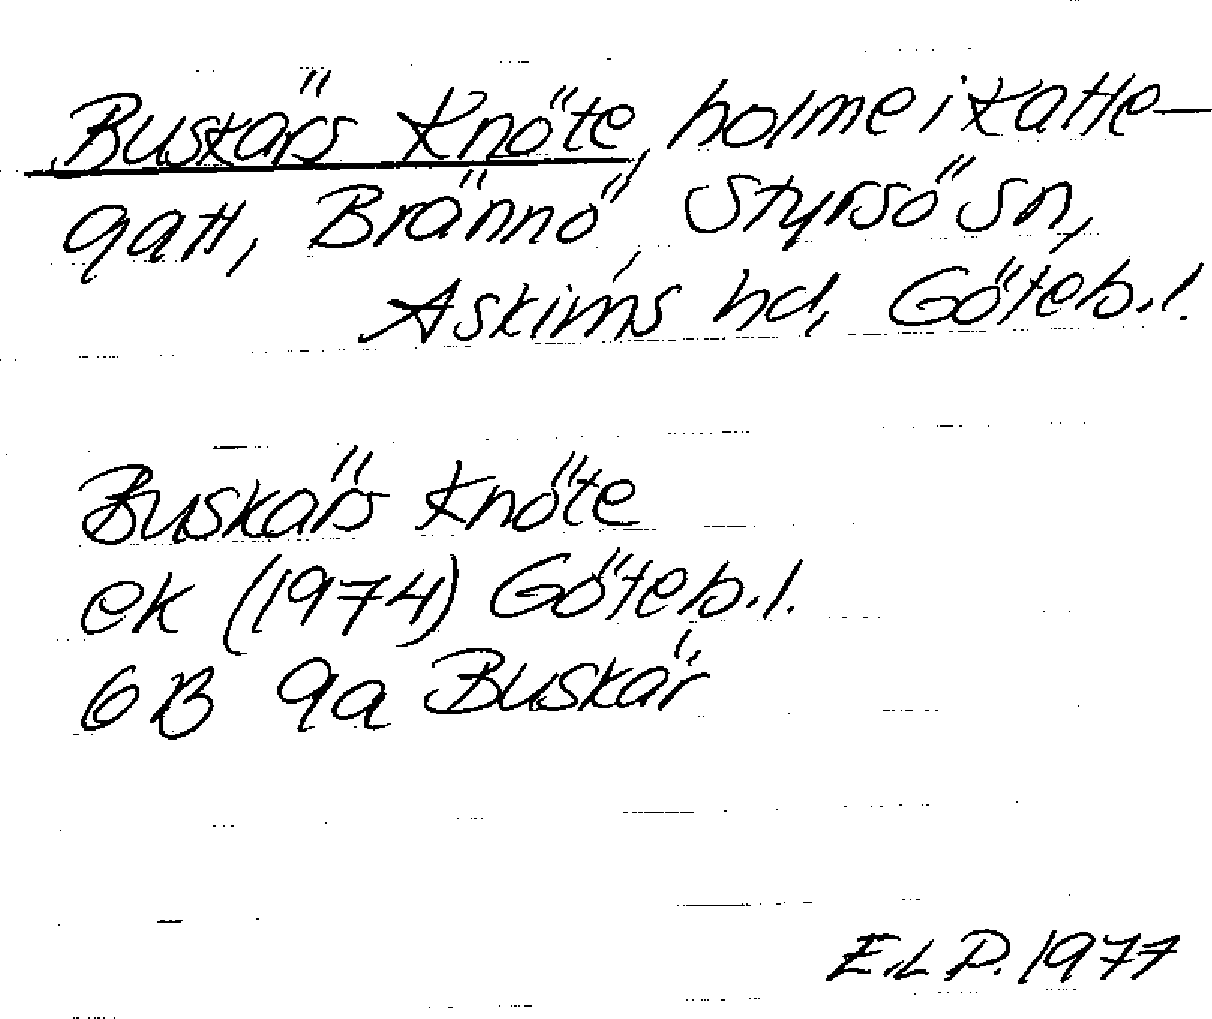 Buskärs Knöte, holme i Katte-
gatt, Brännö, Styrsö sn,
Askims hd, Göteb.l.
Buskärs Knöte
ek (1974) Göteb.l.
6B 9a Buskär
E.L.P. 1977